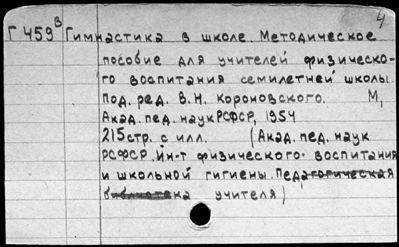 4
Г 459 в Гимнастика в школе. Методическое
пособие для учителей физическо-
го воспитания семилетней школы.
Под. ред. В.Н. Короновского. М,
Акад. пед. наук РСФСР, 1954
215стр. с илл. (Акад. пед. наук
РСФСР. Ин-т физического воспитания
и школьной гигиены. Педагогическая
библиотека учителя)